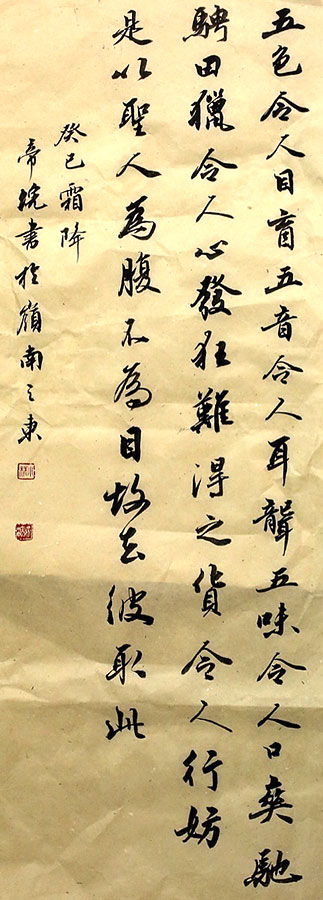 五色令人目盲五音令人耳聾五味令人口爽馳
騁田獵令人心發狂難得之貨令人行妨
是以聖人為腹不為目故去彼取此
癸巳霜降
帝㨘書於嶺南之東